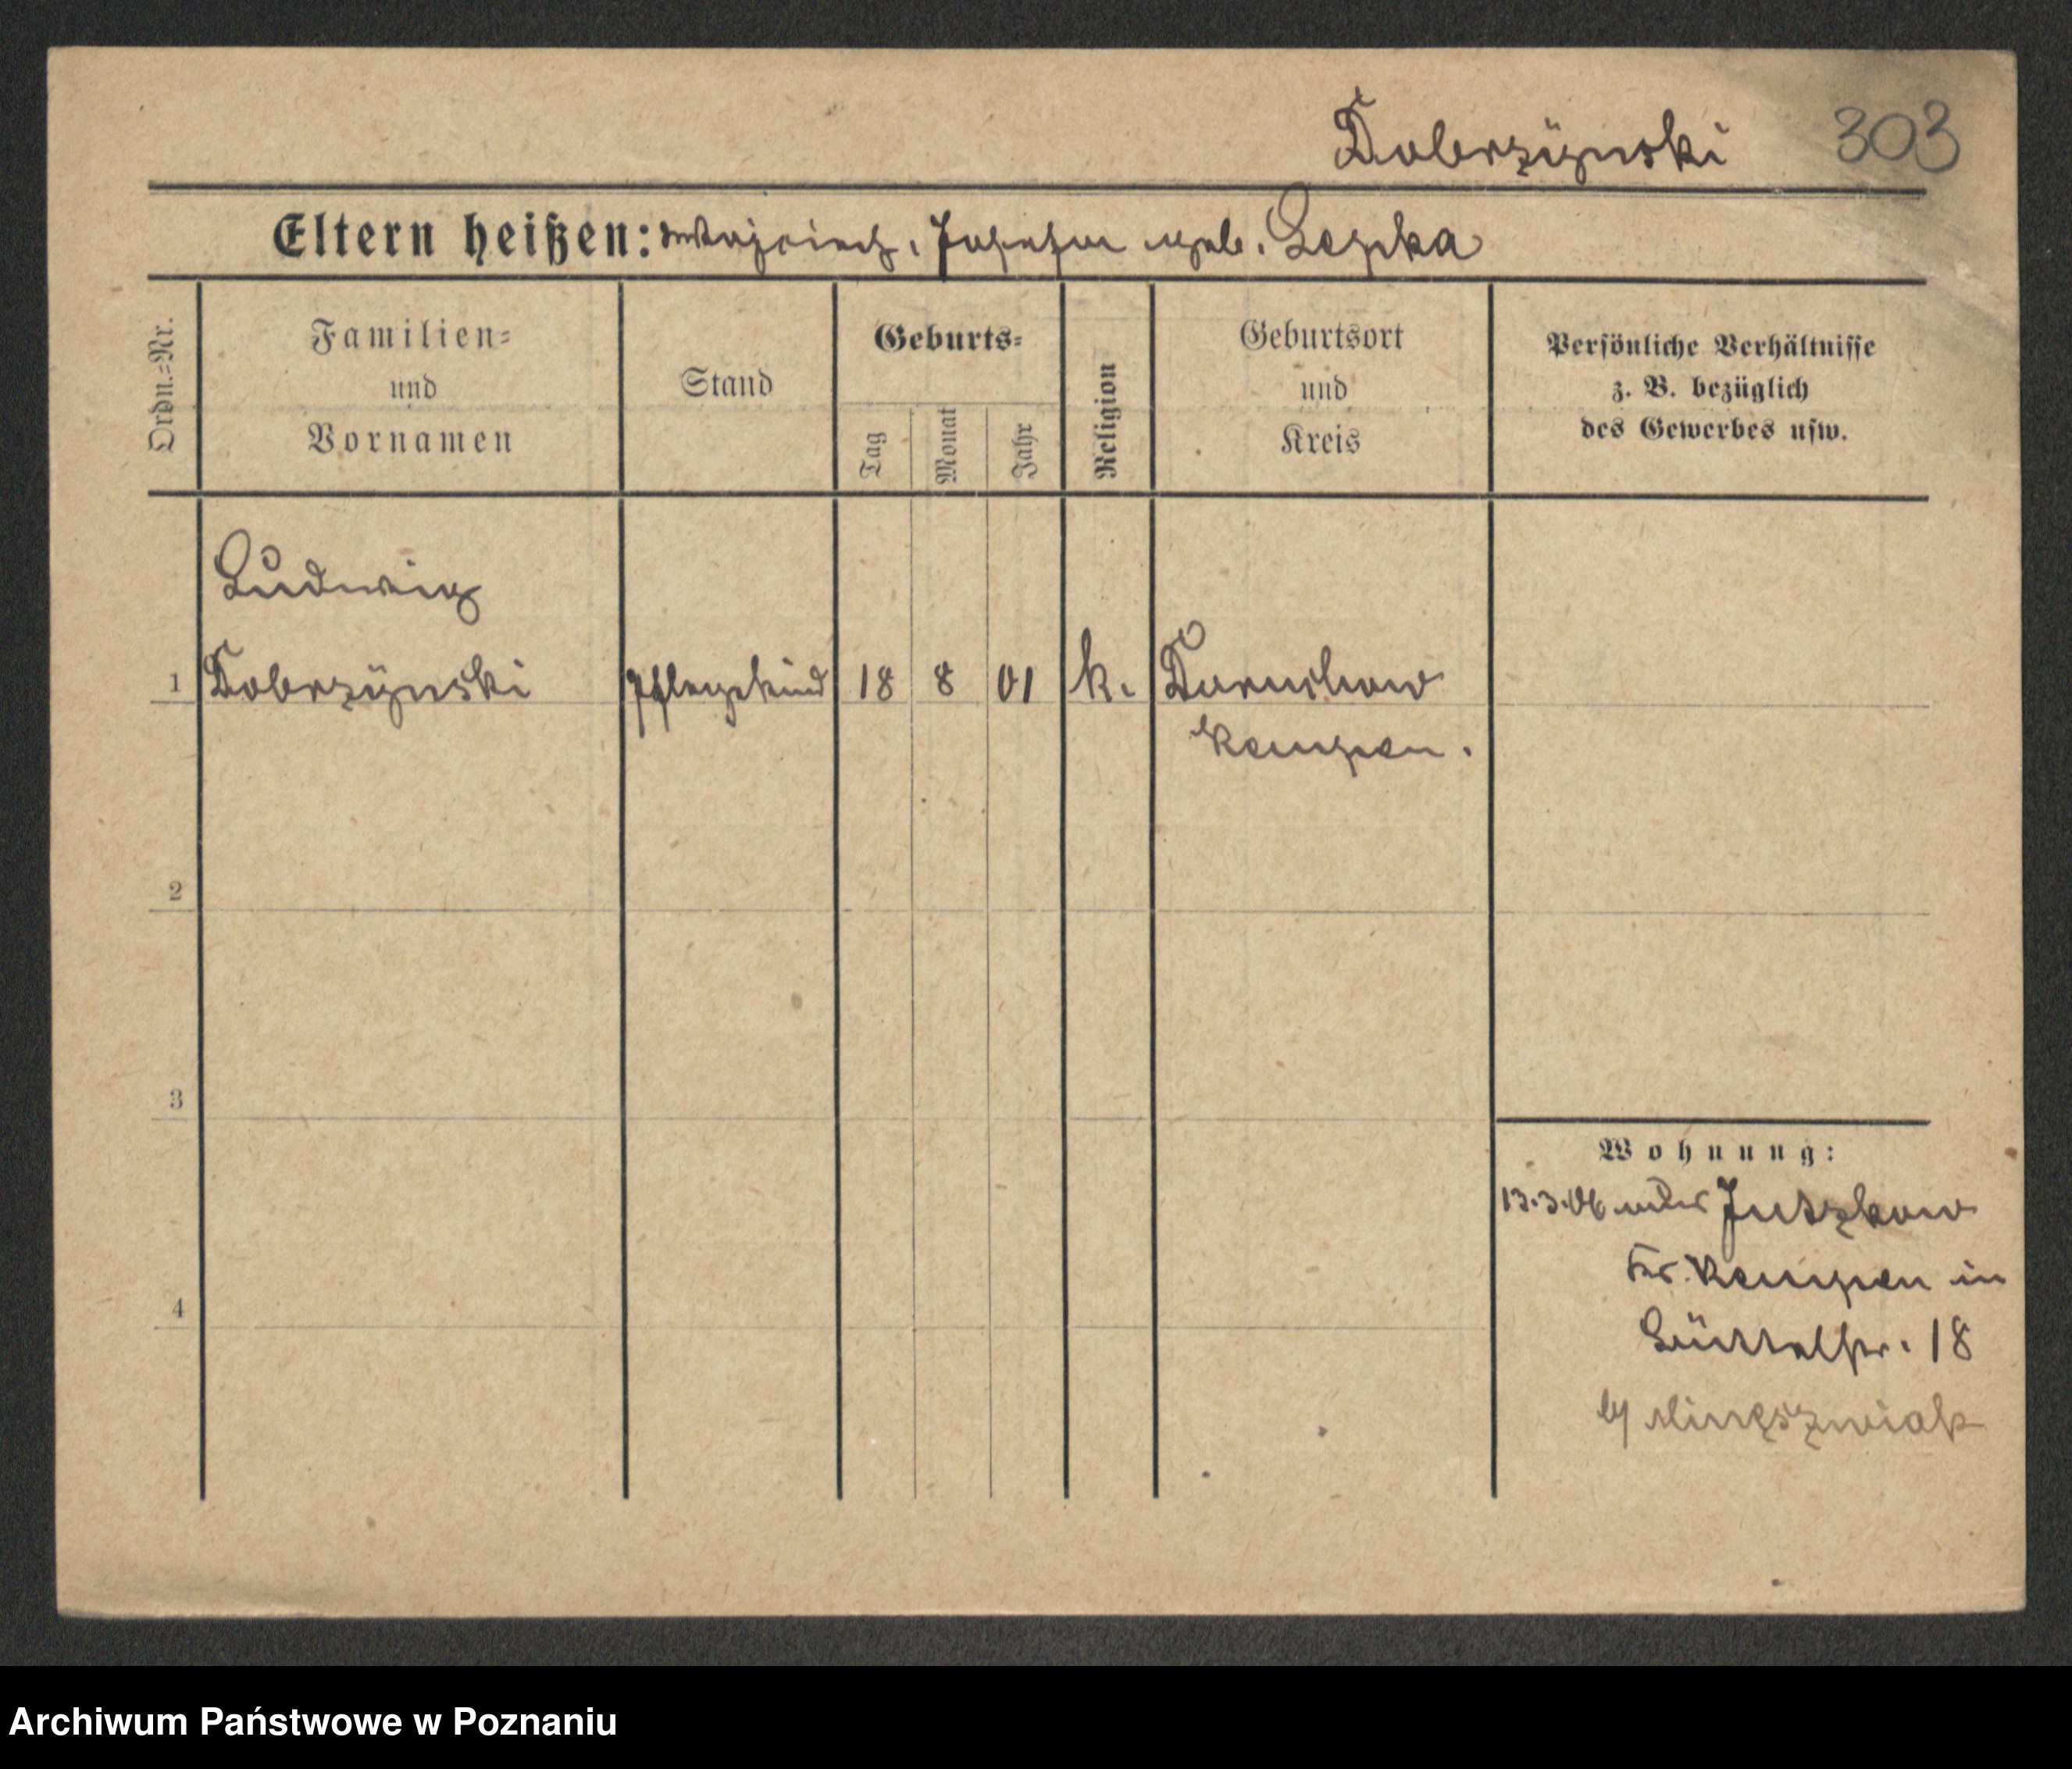 Dobrzÿnski 303
Eltern heißen: Wojciech, Josefa geb. Lepka
Ordn.=Nr.
Familien=
und
Vornamen
Stand
Geburts=
Tag
Monat
Jahr
Religion
Geburtsort
und
Kreis
Persönliche Verhältnisse
z. B. bezüglich
des Gewerbes usw.
Ludwig
1 Dobrzÿnski Pflegekind 18 8 01 k. Doruchow
Kempen.
2
3
4
Wohnung:
13.3.06
Kr. Kempen in
18
Archiwum Państwowe w Poznaniu